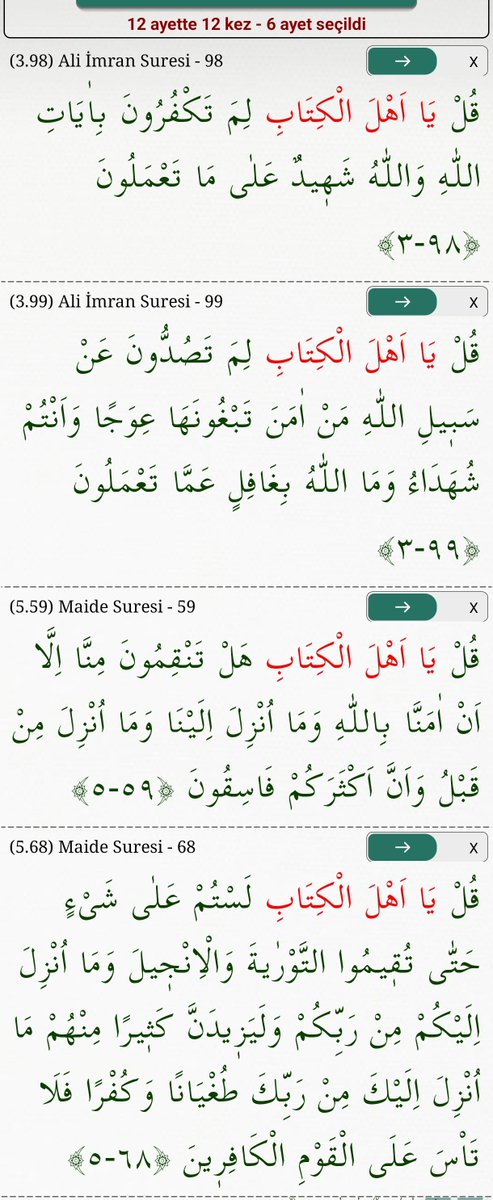 12 ayette 12 kez - 6 ayet seçildi
(3.98) Ali İmran Suresi - 98 → X
قُلْ يَا اَهْلَ الْكِتَابِ لِمَ تَكْفُرُونَ بِاٰيَاتِ
اللّٰهِ وَاللّٰهُ شَهٖيدٌ عَلٰى مَا تَعْمَلُونَ
﴿٣-٩٨﴾
(3.99) Ali İmran Suresi - 99 → X
قُلْ يَا اَهْلَ الْكِتَابِ لِمَ تَصُدُّونَ عَنْ
سَبٖيلِ اللّٰهِ مَنْ اٰمَنَ تَبْغُونَهَا عِوَجًا وَاَنْتُمْ
شُهَدَاءُ وَمَا اللّٰهُ بِغَافِلٍ عَمَّا تَعْمَلُونَ
﴿٣-٩٩﴾
(5.59) Maide Suresi - 59 → X
قُلْ يَا اَهْلَ الْكِتَابِ هَلْ تَنْقِمُونَ مِنَّا اِلَّا
اَنْ اٰمَنَّا بِاللّٰهِ وَمَا اُنْزِلَ اِلَيْنَا وَمَا اُنْزِلَ مِنْ
قَبْلُ وَاَنَّ اَكْثَرَكُمْ فَاسِقُونَ ﴿٥-٥٩﴾
(5.68) Maide Suresi - 68 → X
قُلْ يَا اَهْلَ الْكِتَابِ لَسْتُمْ عَلٰى شَیْءٍ
حَتّٰى تُقٖيمُوا التَّوْرٰيةَ وَالْاِنْجٖيلَ وَمَا اُنْزِلَ
اِلَيْكُمْ مِنْ رَبِّكُمْ وَلَيَزٖيدَنَّ كَثٖيرًا مِنْهُمْ مَا
اُنْزِلَ اِلَيْكَ مِنْ رَبِّكَ طُغْيَانًا وَكُفْرًا فَلَا
تَاْسَ عَلَى الْقَوْمِ الْكَافِرٖينَ ﴿٥-٦٨﴾